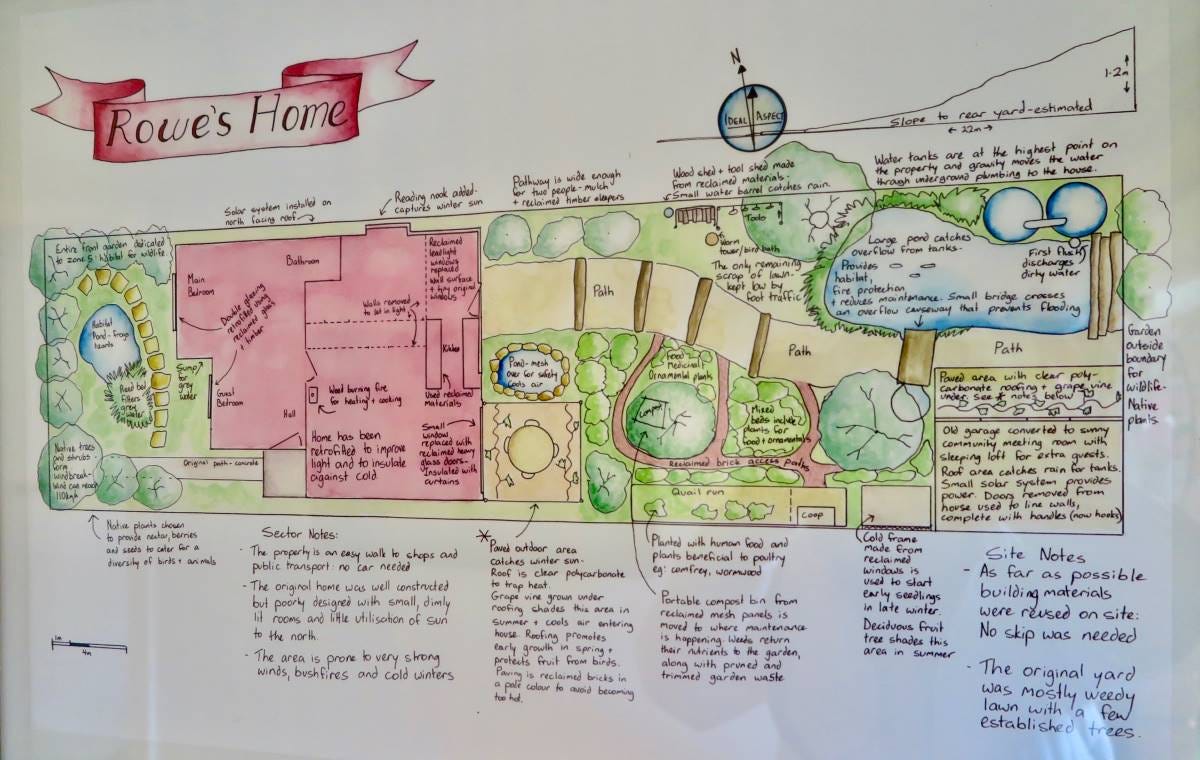 Rowe's Home
N
IDEAL ASPECT
1.2m
Slope to rear yard-estimated
← 22m →
Solar system installed on
north facing roof
Reading nook added-
captures winter sun
Pathway is wide enough
for two people- mulch
+ reclaimed timber sleepers
Wood shed + tool shed made
from reclaimed materials-
Small water barrel catches rain.
Water tanks are at the highest point on
the property and gravity moves the water
through underground plumbing to the house.
Entire front garden dedicated
to zone 5 habitat for wildlife.
Main
Bedroom
Bathroom
Double glazing
retrofitted using
reclaimed glass
+ timber
Reclaimed
leadlight
windows
replaced
wall surface
+ tiny original
windows
Walls removed
to let in light
Habitat
Pond- frogs
lizards
Reed bed
filters
grey
water
Sump
for
grey
water
Guest
Bedroom
Hall
Wood burning fire
for heating + cooking
Kitchen
Used reclaimed
Materials
Home has been
retrofitted to improve
light and to insulate
against cold
Small
window
replaced with
reclaimed heavy
glass doors-
Insulated with
curtains
Native trees
and shrubs -
form
windbreak-
Wind can reach
110kmh
Original path - concrete
Path
Tools
Worm
tower/bird bath
The only remaining
scrap of lawn-
kept low by
foot traffic
Large pond catches
overflow from tanks-
Provides
habitat,
fire protection
+ reduces maintenance. Small bridge crosses
an overflow causeway that prevents flooding
First flush
discharges
dirty water
Pond- mesh
over for safety
Cools air
Food
Medicinal
Ornamental plants
Compost
Mixed
beds include
plants for
food + ornamentals
Reclaimed brick access paths
Path
Path
Garden
outside
boundary
for
wildlife-
Native
plants.
Paved area with clear poly-
carbonate roofing + grape vine
under see * notes below
Old garage converted to sunny
community meeting room with
sleeping loft for extra guests.
Roof area catches rain for tanks.
Small solar system provides
power. Doors removed from
house used to line walls,
complete with handles (now hooks)
Quail run
Coop
Native plants chosen
to provide nectar, berries
and seeds to cater for a
diversity of birds + animals
1m
4m
Sector Notes:
- The property is an easy walk to shops and
public transport: no car needed
- The original home was well constructed
but poorly designed with small, dimly
lit rooms and little utilisation of sun
to the north.
- The area is prone to very strong
winds, bushfires and cold winters
* Paved outdoor area
catches winter sun-
Roof is clear polycarbonate
to trap heat.
Grape vine grown under
roofing shades this area in
summer + cools air entering
house. Roofing promotes
early growth in spring +
protects fruit from birds.
Paving is reclaimed bricks in
a pale colour to avoid becoming
too hot.
Planted with human food and
plants beneficial to poultry
eg: comfrey, wormwood
Portable compost bin from
reclaimed mesh panels is
moved to where maintenance
is happening. Weeds return
their nutrients to the garden,
along with pruned and
trimmed garden waste
Cold frame
made from
reclaimed
windows is
used to start
early seedlings
in late winter.
Deciduous fruit
tree shades this
area in summer
Site Notes
- As far as possible
building materials
were reused on site:
No skip was needed
- The original yard
was mostly weedy
lawn with a few
established trees.